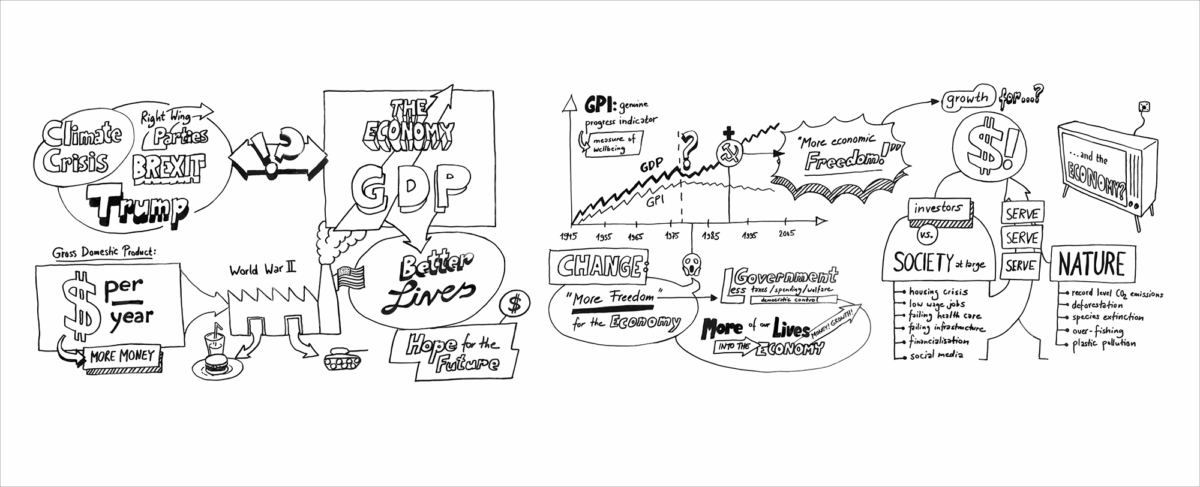 Climate
Crisis
Right Wing
Parties
BREXIT
Trump
!?
THE
ECONOMY
GDP
Gross Domestic Product:
$ per
year
MORE MONEY
World War II
Better
Lives
$
Hope for the
Future
GPI: genuine
progress indicator
measure of
wellbeing
GDP
?
GPI
1945 1955 1965 1975 1985 1995 2005
"More economic
Freedom!"
growth for...?
$!
...and the
ECONOMY?
investors
vs.
SOCIETY at large
housing crisis
low wage jobs
failing health care
failing infrastructure
financialisation
social media
SERVE
SERVE
SERVE
NATURE
record level CO2 emissions
deforestation
species extinction
over-fishing
plastic pollution
CHANGE:
"More Freedom"
for the Economy
Government
Less taxes/spending/welfare
democratic control
More of our Lives
INTO THE ECONOMY
MONEY! GROWTH!